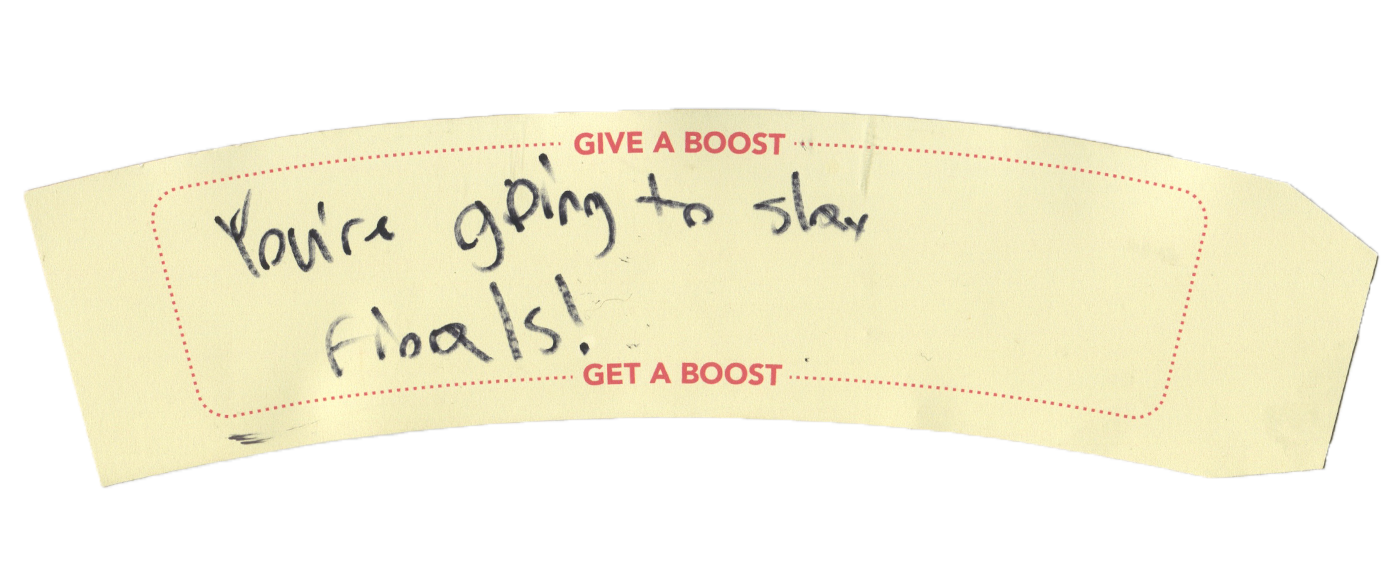 GIVE A BOOST
You're going to slay
finals!
GET A BOOST